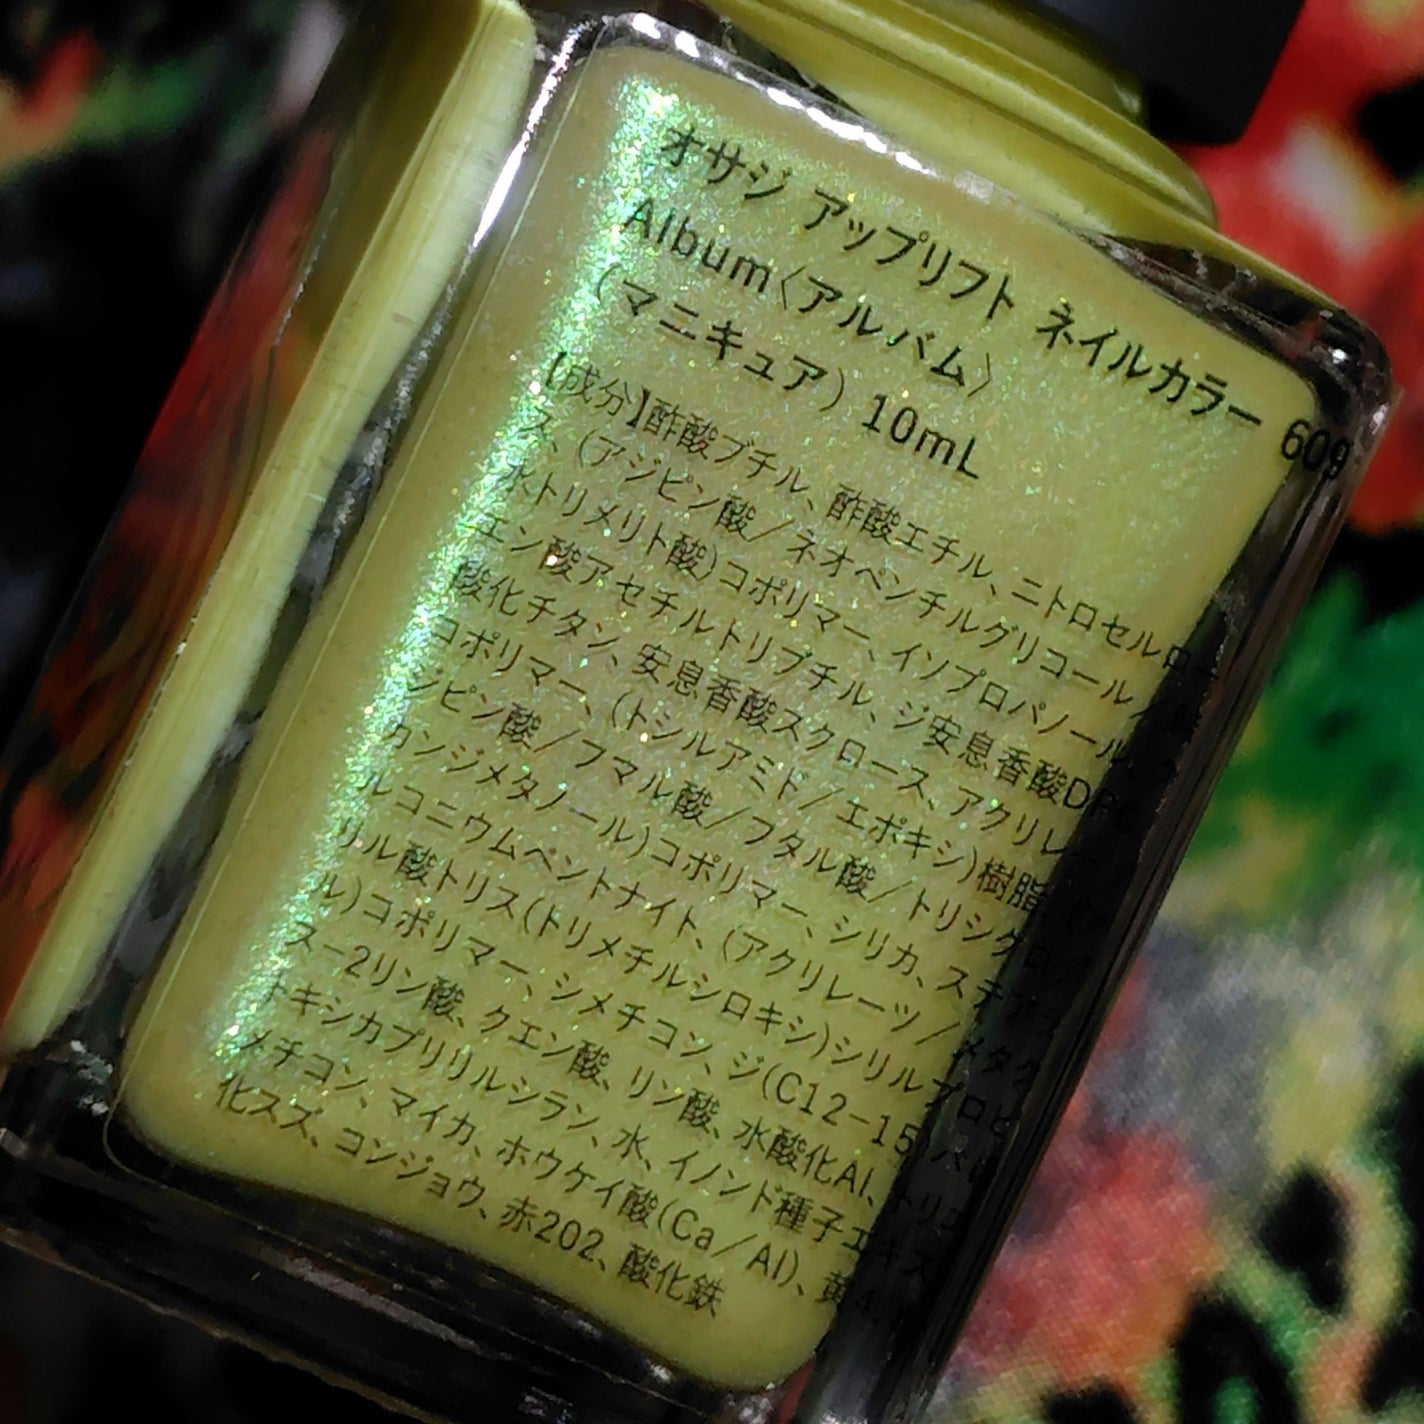 オサジ アップリフト ネイルカラー 609
Album〈アルバム〉
(マニキュア) 10mL
【成分】酢酸ブチル、酢酸エチル、ニトロセルロー
ス、(アジピン酸/ネオペンチルグリコール/
水トリメリト酸)コポリマー、イソプロパノール、
エン酸アセチルトリブチル、ジ安息香酸DPG
酸化チタン、安息香酸スクロース、アクリレ
コポリマー、(トシルアミド/エポキシ)樹脂、(
ジピン酸/フマル酸/フタル酸/トリシクロデ
カンジメタノール)コポリマー、シリカ、ステアラ
ルコニウムベントナイト、(アクリレーツ/メタク
リル酸トリス(トリメチルシロキシ)シリルプロピ
ル)コポリマー、シメチコン、ジ(C12-15)パレ
ス-2リン酸、クエン酸、リン酸、水酸化Al、トリエ
トキシカプリリルシラン、水、イノンド種子エキス
メチコン、マイカ、ホウケイ酸(Ca/Al)、黄4
化スズ、コンジョウ、赤202、酸化鉄